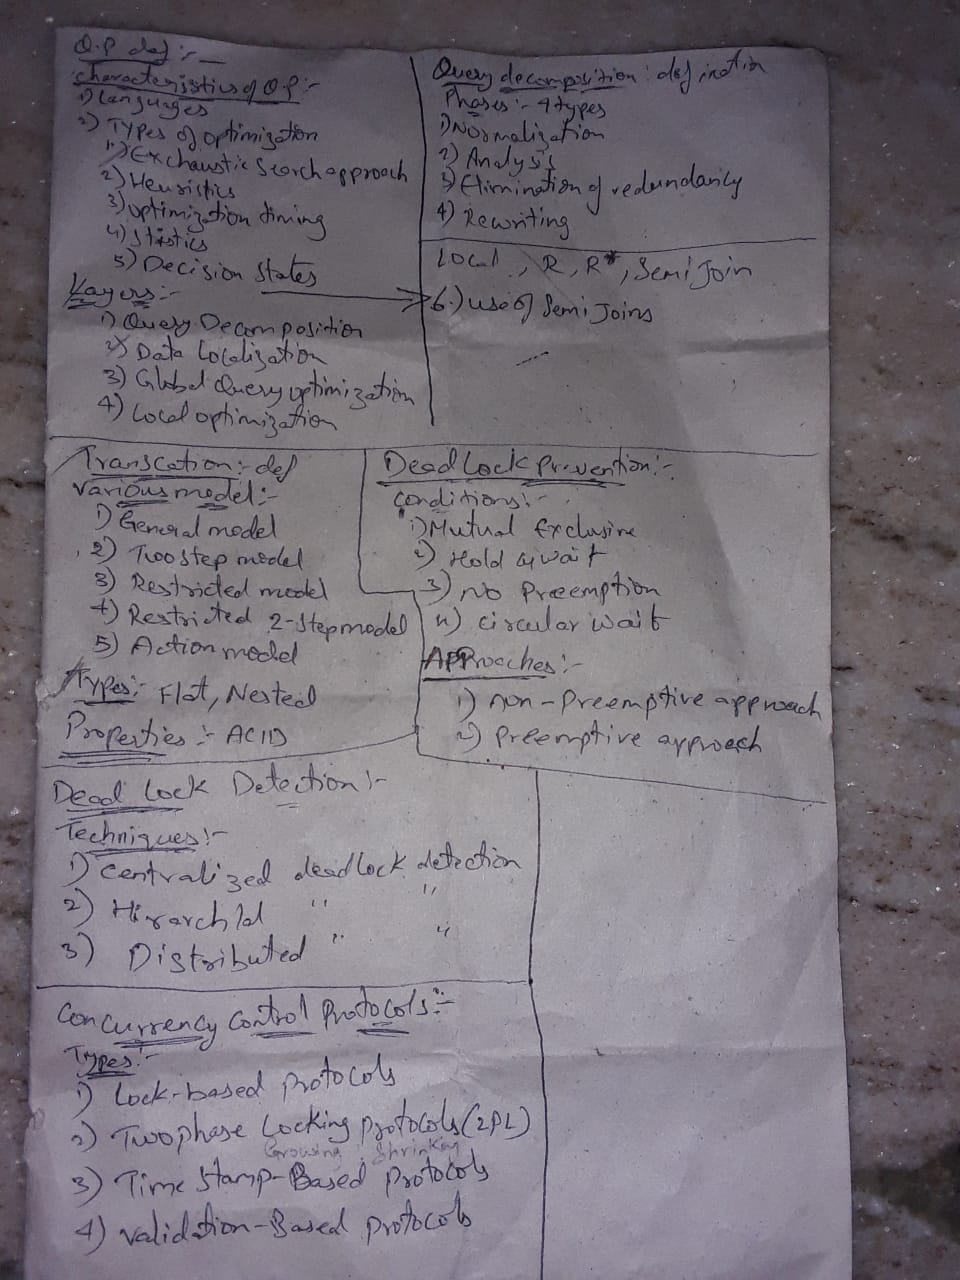 Q.P def :-
characteristics of Q.P :-
1) Languages
2) Types of optimization
1) Exchaustic Search approach
2) Heuristics
3) optimization timing
4) Stistics
5) Decision States
Layers :-
1) Query Decomposition
2) Data Localization
3) Global Query optimization
4) Local optimization
Query decomposition : defination
Phases :- 4 types
1) Normalization
2) Analysis
3) Elimination of redundancy
4) Rewriting
Local, R, R*, Semi Join
6.) use of Semi Joins
Transcation :- def
Various model :-
1) General model
2) Two step model
3) Restricted model
4) Restricted 2-Step model
5) Action model
Types :- Flat, Nested
Properties :- ACID
Dead Lock Prevention :-
conditions :-
1) Mutual Exclusive
2) Hold & wait
3) no Preemption
4) circular wait
APProaches :-
1) non-Preemptive approach
2) Preemptive approach
Dead lock Detection :-
Techniques :-
1) Centralized deadlock detection
2) " "
3) Distributed " "
Concurrency Control Protocols :-
Types :-
1) Lock-based protocols
2) Two phase Locking protocols (2PL)
Growing, Shrinking
3) Time Stamp-Based protocols
4) Validation-Based protocols